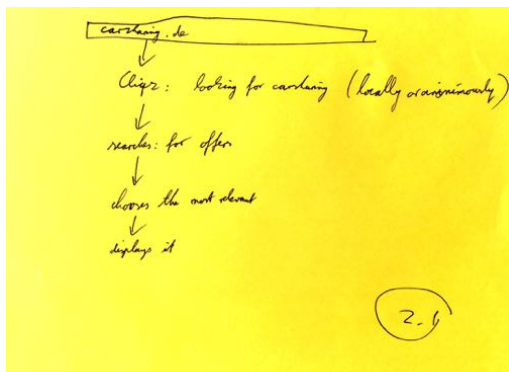 carsharing.de
Cliqz: looking for carsharing (locally or anonymously)
searches: for offers
chooses the most relevant
displays it